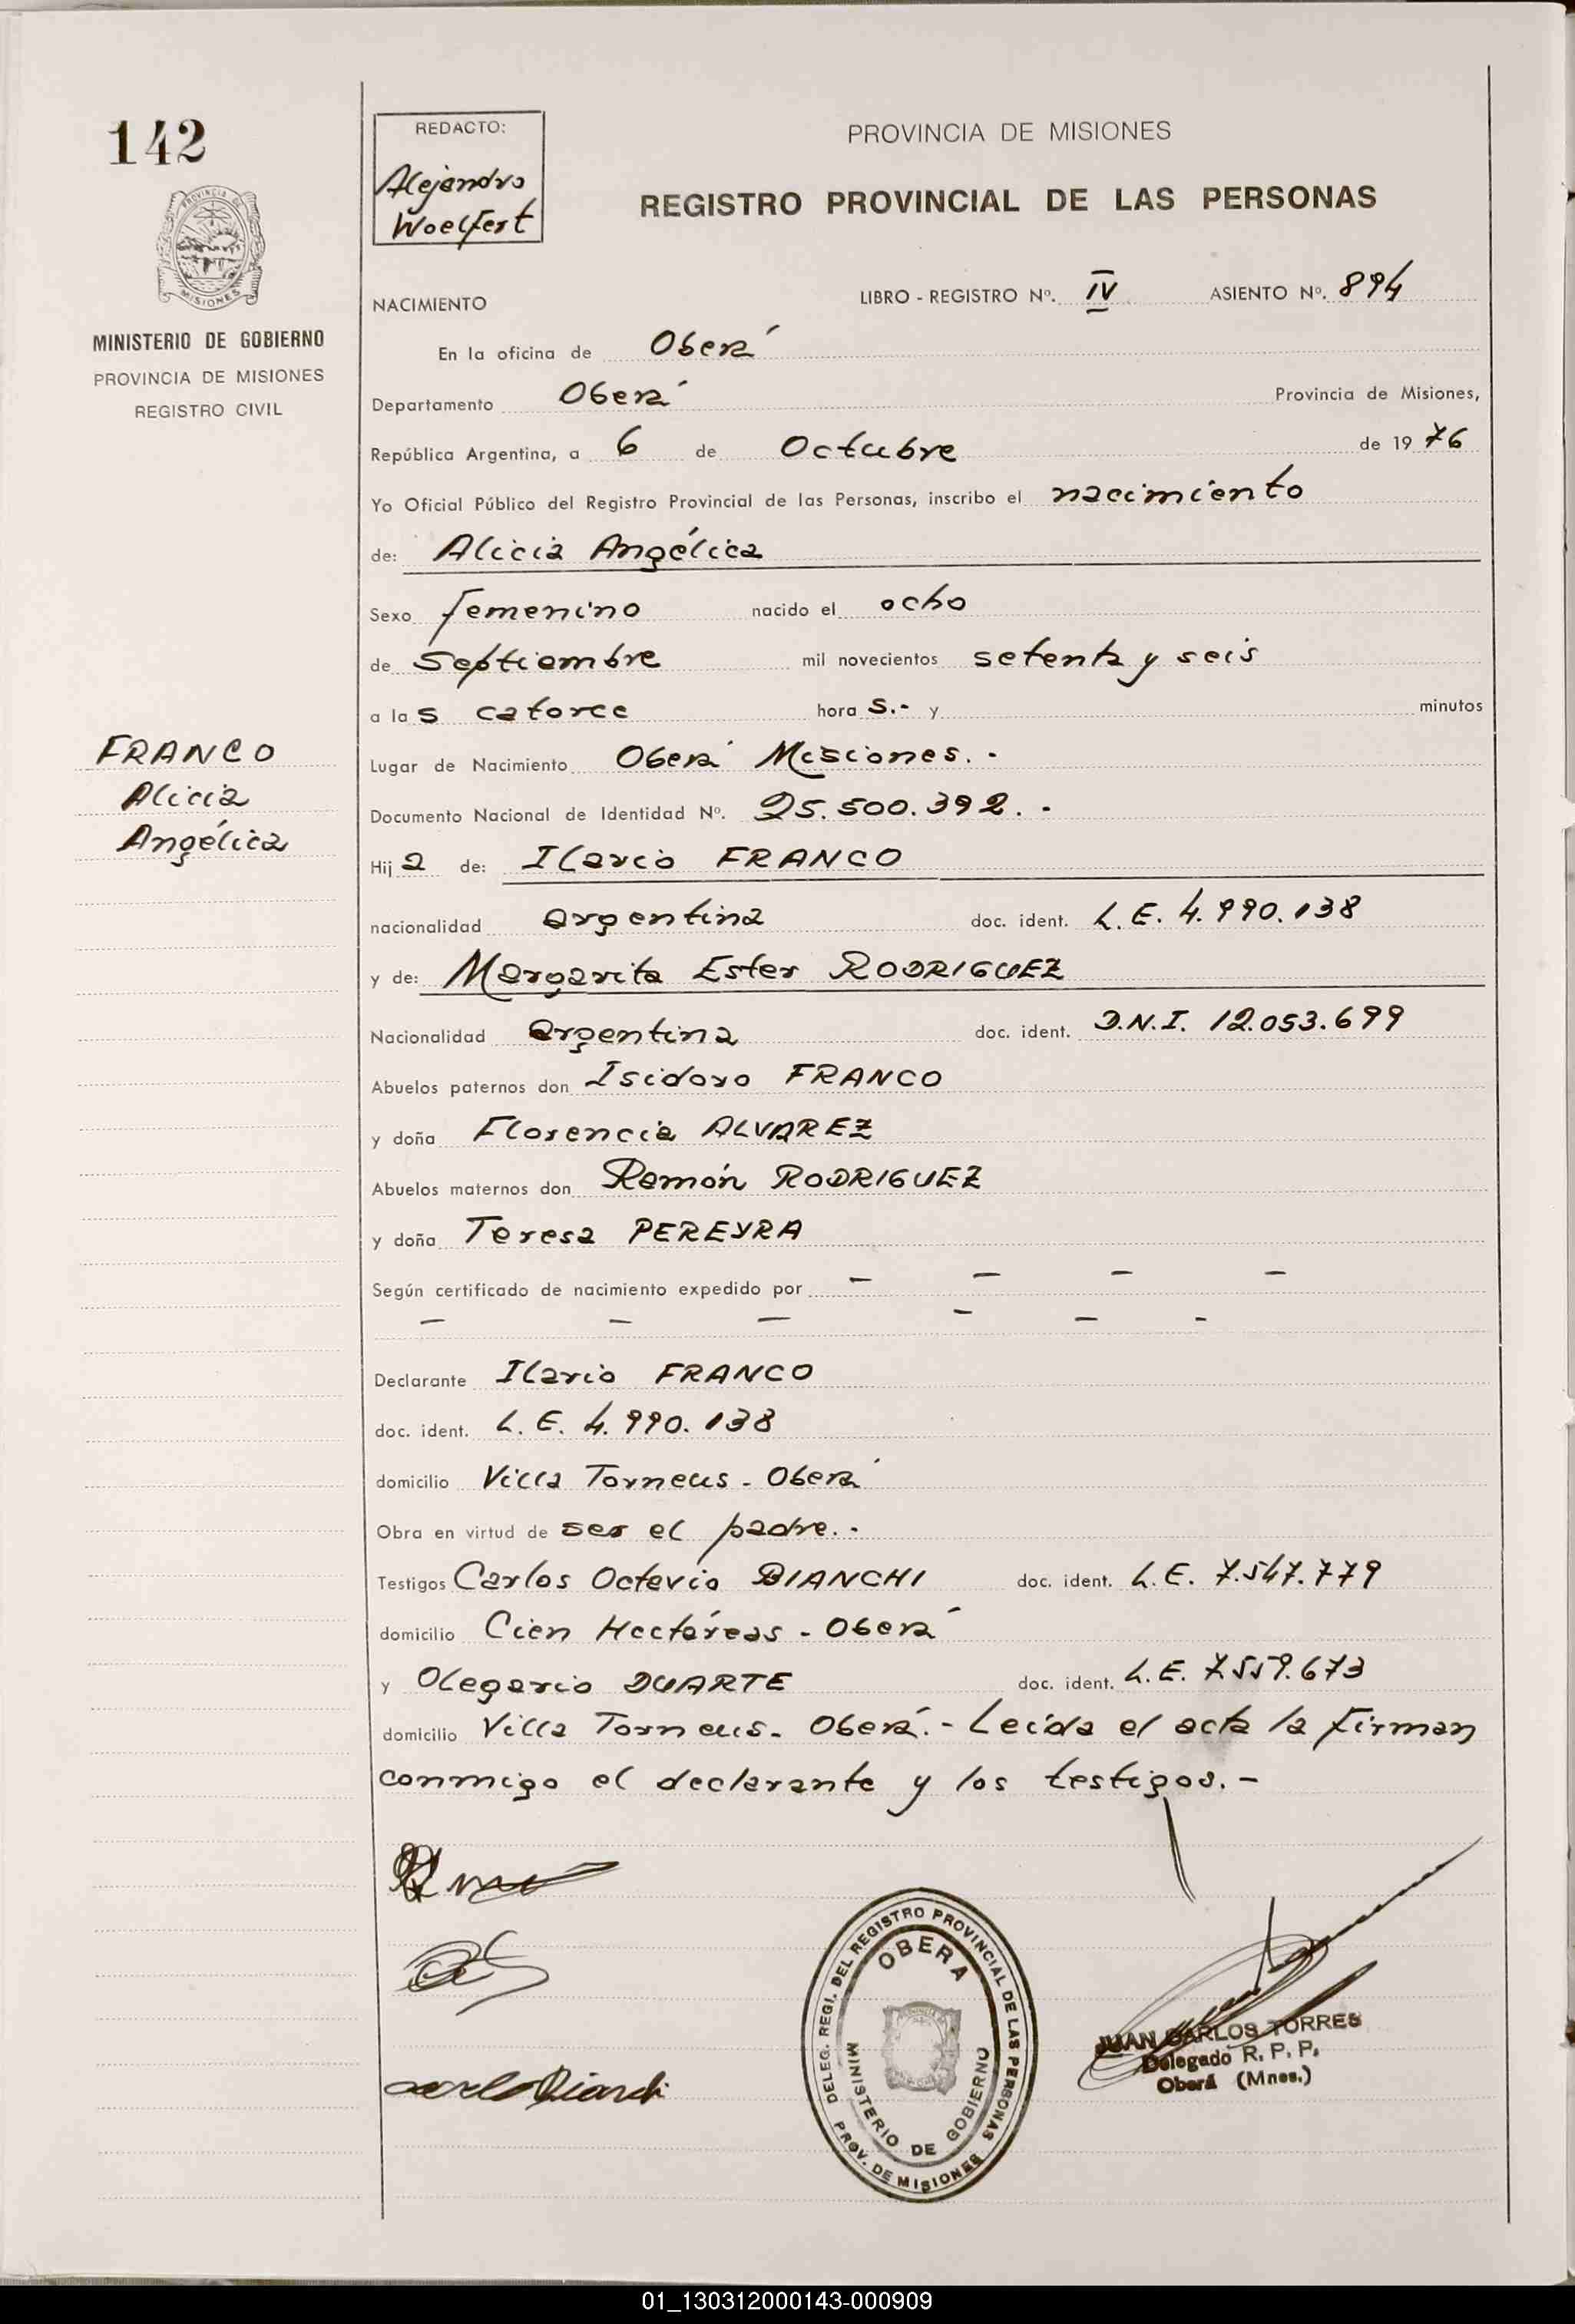 142
REDACTO:
Alejandro
Woelfert
PROVINCIA DE MISIONES
REGISTRO PROVINCIAL DE LAS PERSONAS
PROVINCIA DE
MISIONES
MINISTERIO DE GOBIERNO
PROVINCIA DE MISIONES
REGISTRO CIVIL
NACIMIENTO LIBRO - REGISTRO Nº. IV ASIENTO Nº. 894
En la oficina de Oberá
Departamento Oberá Provincia de Misiones,
República Argentina, a 6 de Octubre de 1976
Yo Oficial Público del Registro Provincial de las Personas, inscribo el nacimiento
de: Alicia Angélica
Sexo femenino nacido el ocho
de Septiembre mil novecientos setenta y seis
a las catorce horas.- y minutos
FRANCO
Alicia
Angélica
Lugar de Nacimiento Oberá Misiones.-
Documento Nacional de Identidad Nº. 25.500.392.-
Hija de: Ilario FRANCO
nacionalidad argentina doc. ident. L.E. 4.990.138
y de: Margarita Ester RODRIGUEZ
Nacionalidad argentina doc. ident. D.N.I. 12.053.699
Abuelos paternos don Isidoro FRANCO
y doña Florencia ALVAREZ
Abuelos maternos don Ramón RODRIGUEZ
y doña Teresa PEREYRA
Según certificado de nacimiento expedido por – – – –
– – – – – -
Declarante Ilario FRANCO
doc. ident. L.E. 4.990.138
domicilio Villa Torneus - Oberá
Obra en virtud de ser el padre.-
Testigos Carlos Octavio BIANCHI doc. ident. L.E. 7.547.779
domicilio Cien Hectáreas - Oberá
y Olegario DUARTE doc. ident. L.E. 7.559.673
domicilio Villa Torneus - Oberá.- Leída el acta la firman
conmigo el declarante y los testigos.-
DELEG. REGI. DEL REGISTRO PROVINCIAL DE LAS PERSONAS
OBERA
MINISTERIO DE GOBIERNO
PROV. DE MISIONES
JUAN CARLOS TORRES
Delegado R. P. P.
Oberá (Mnes.)
01_130312000143-000909